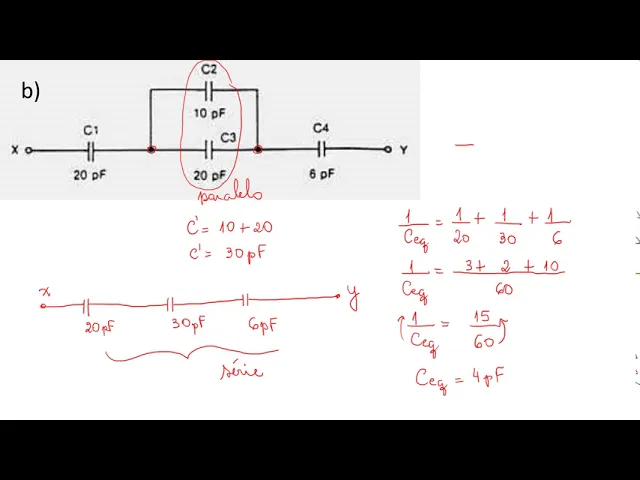 b)
C2
10 pF
X C1 C3 C4 Y
20 pF 20 pF 6 pF
paralelo
C' = 10 + 20
C' = 30 pF
x y
20 pF 30 pF 6 pF
série
1/Ceq = 1/20 + 1/30 + 1/6
1/Ceq = 3 + 2 + 10 / 60
1/Ceq = 15/60
Ceq = 4 pF